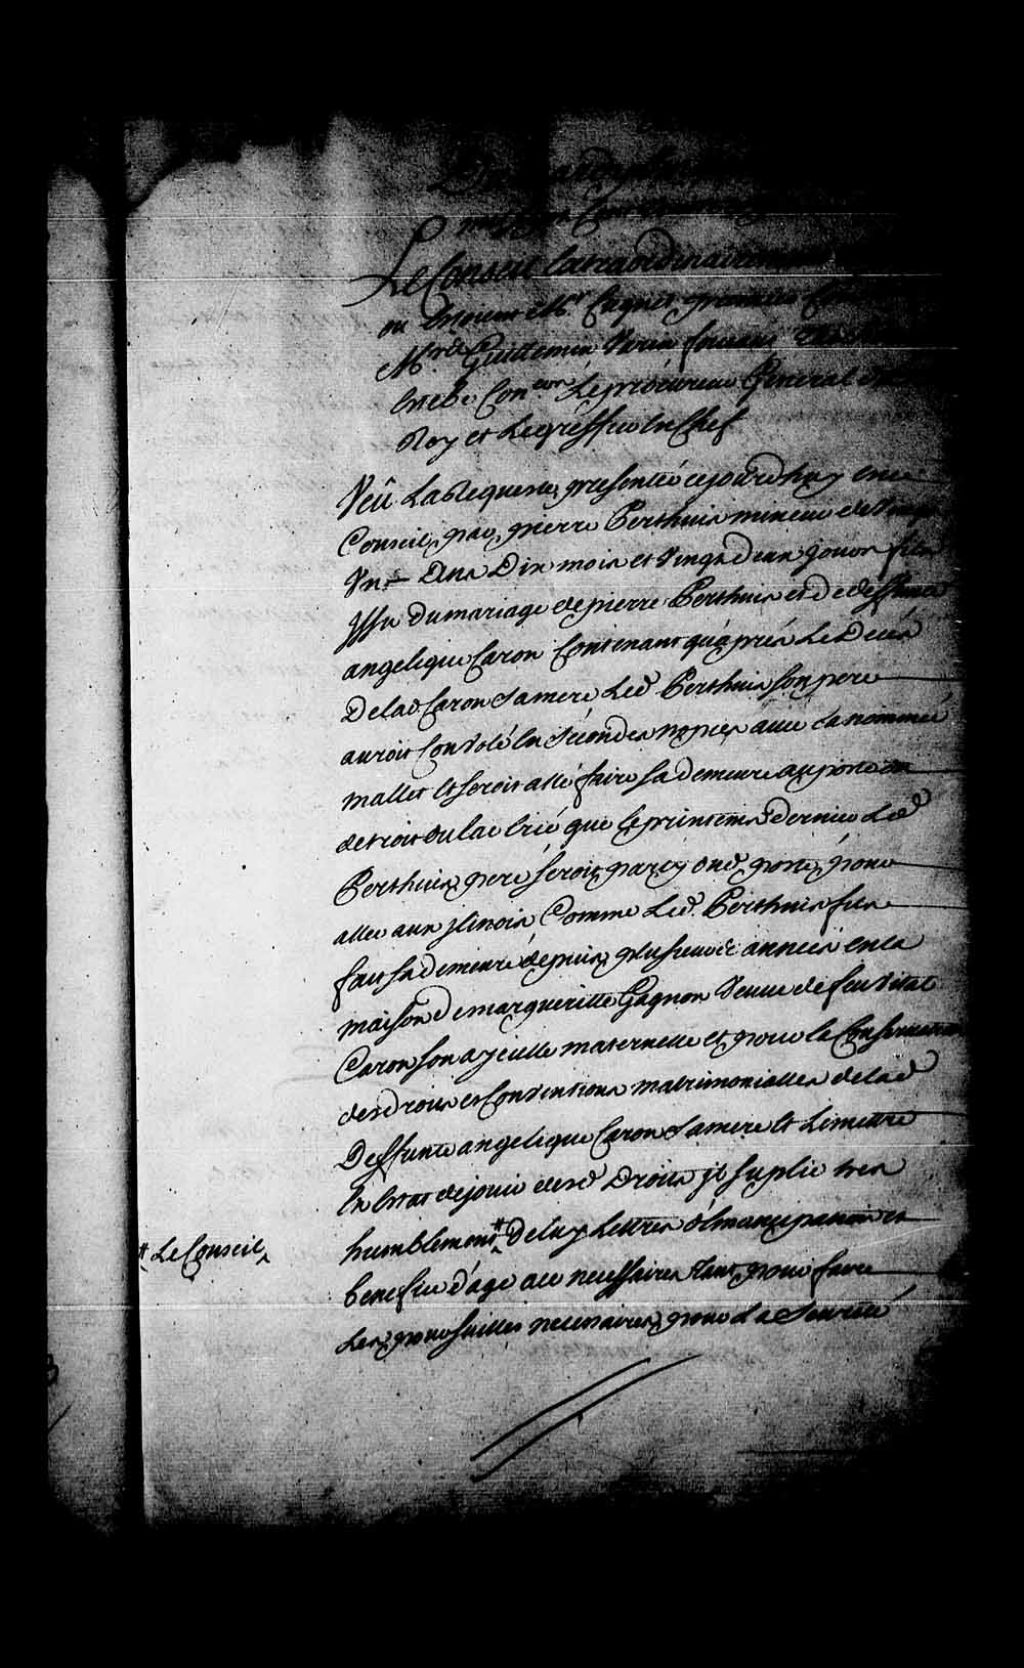 Le Conseil Extraordinairement
ou Etoient Mr. Cugnet premier
Mrs. Guillemin Varin
Con.ers Le procureur General du
Roy et Le greffier En Chef
Veû La Requeste presentée cejourd'huy en ce
Conseil par pierre Perthuis mineur de Vingt
Un Ans Dix mois et Vingt deux jours fils
Issu Du mariage de pierre Perthuis et De deffunte
angelique Caron Contenant qu'après Le Decés
De lad. Caron Sa mere Led. Perthuis son pere
auroit Convolé En Secondes nopces avec La nommée
mallet Et seroit allé faire sa demeure au poste du
detroit du lac Erié que le printems Dernier Led.
Perthuis pere seroit party dud. poste pour
aller aux jlinois Comme Led. Perthuis fils
fait sa demeure depuis plusieurs années en la
maison de margueritte Gagnon Veuve de feu Vital
Caron son ayeulle maternelle et pour la Conservation
des droits et Conventions matrimonialles de lad.
Deffunte angelique Caron Sa mere Et Le mettre
En Etat de jouir desd. Droits jl suplie tres
humblement # De luy Lettres d'émancipation et
# Le Conseil
benefice d'age ace necessaires tant pour faire
Les poursuittes necessaires pour La Seureté